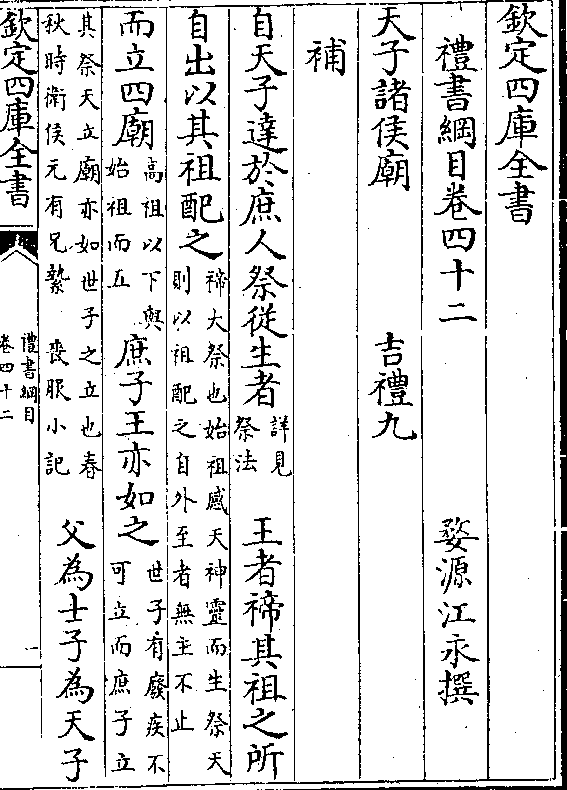 欽定四庫全書
禮書綱目卷四十二
婺源江永撰
天子諸侯廟
吉禮九
補
自天子達於庶人祭從生者
詳見
祭法
王者禘其祖之所
自出以其祖配之
禘大祭也始祖感天神靈而生祭天
則以祖配之自外至者無主不止
而立四廟
高祖以下與
始祖而五
庶子王亦如之
世子有廢疾不
可立而庶子立
其祭天立廟亦如世子之立也春
秋時衛侯元有兄縶
喪服小記
父為士子為天子
欽定四庫全書
禮書綱目
卷四十二
一